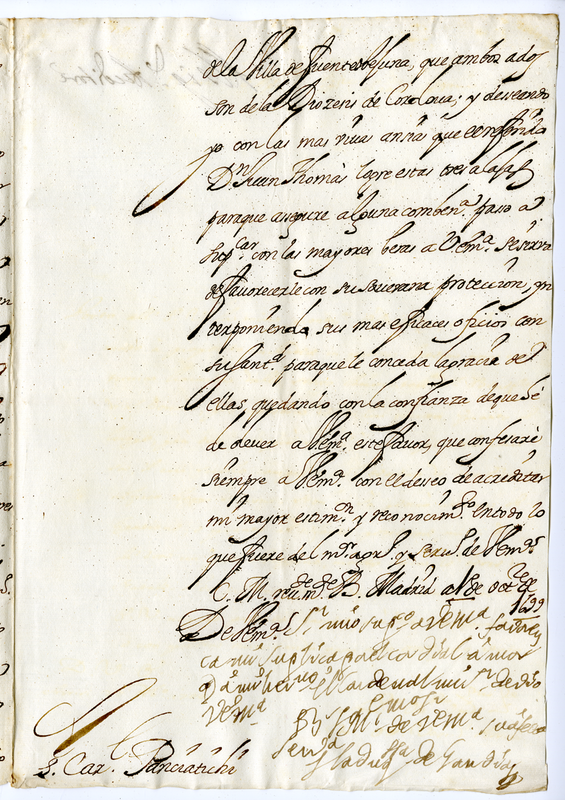 de la Villa de fuenteobejuna, que ambos ados
son de la Diozesis de Cordova; y desseando
yo con las mas vivas ansias que el referido
Dn Juan Thomàs logre estas tres alajas
para que asegure alguna combena. paso a
supcar. con las mayores beras a Vema. se sirva
de favorecerle con su soverana proteccion, yn
terponiendo sus mas eficaces oficios con
su Santd. para que le conceda la gracia de
ellas, quedando con la confianza de que le è
de dever a Vema. este favor, que confesarè
siempre a Vema. con el deseo de acreditar
mi mayor estimon. y reconocimto. en todo lo
que fuere del mr. agrado. y serv. de Vema.
C. M. reu.me de B. Madrid a 1 de octre de
1699
De Vema. Sr mio supco a vema. favorez
ca mi suplica por el cardenal
mi hermano cardenal mi sr. de dio
Vema
B S M de vema. su
serva
la dussa de Gandia
S. Car. Panciatichi